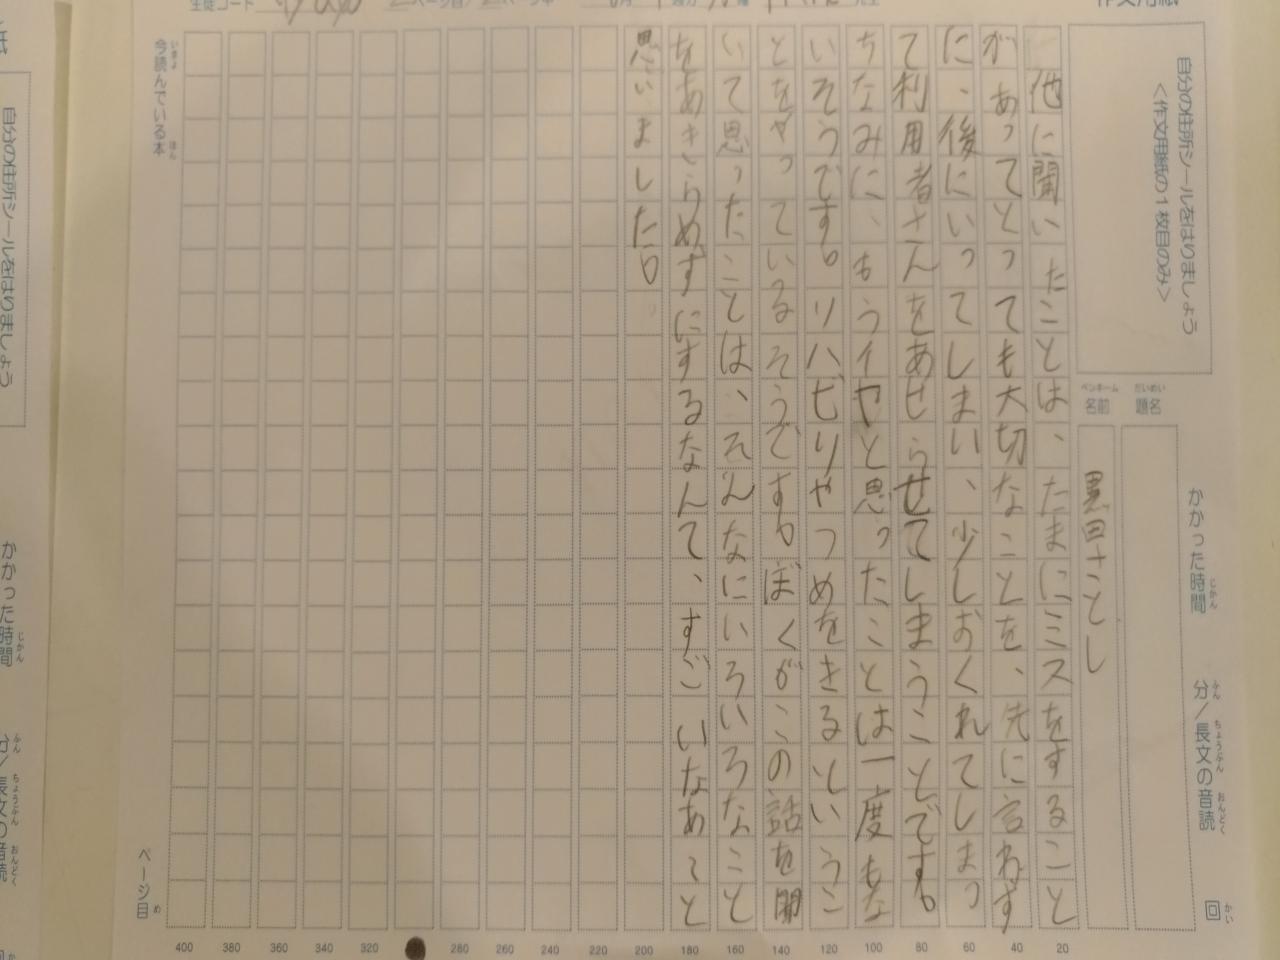 作文用紙
自分の住所シールをはりましょう
<作文用紙の1枚目のみ>
かかった時間 分/長文の音読 回
題名
名前
黒田さとし
他に聞いたことは、たまにミスをすること
があってとっても大切なことを、先に言わず
に、後にいってしまい、少しおくれてしまっ
て利用者さんをあせらせてしまうことです。
ちなみに、もうイヤと思ったことは一度もな
いそうです。リハビリやつめをきるというこ
とをやっているそうです。ぼくがこの話を聞
いて思ったことは、そんなにいろいろなこと
をあきらめずにするなんて、すごいなあてと
思いました。
今読んでいる本
ページ目
400 380 360 340 320 280 260 240 220 200 180 160 140 120 100 80 60 40 20
自分の住所シールをはりましょう
かかった時間
分/長文の音読